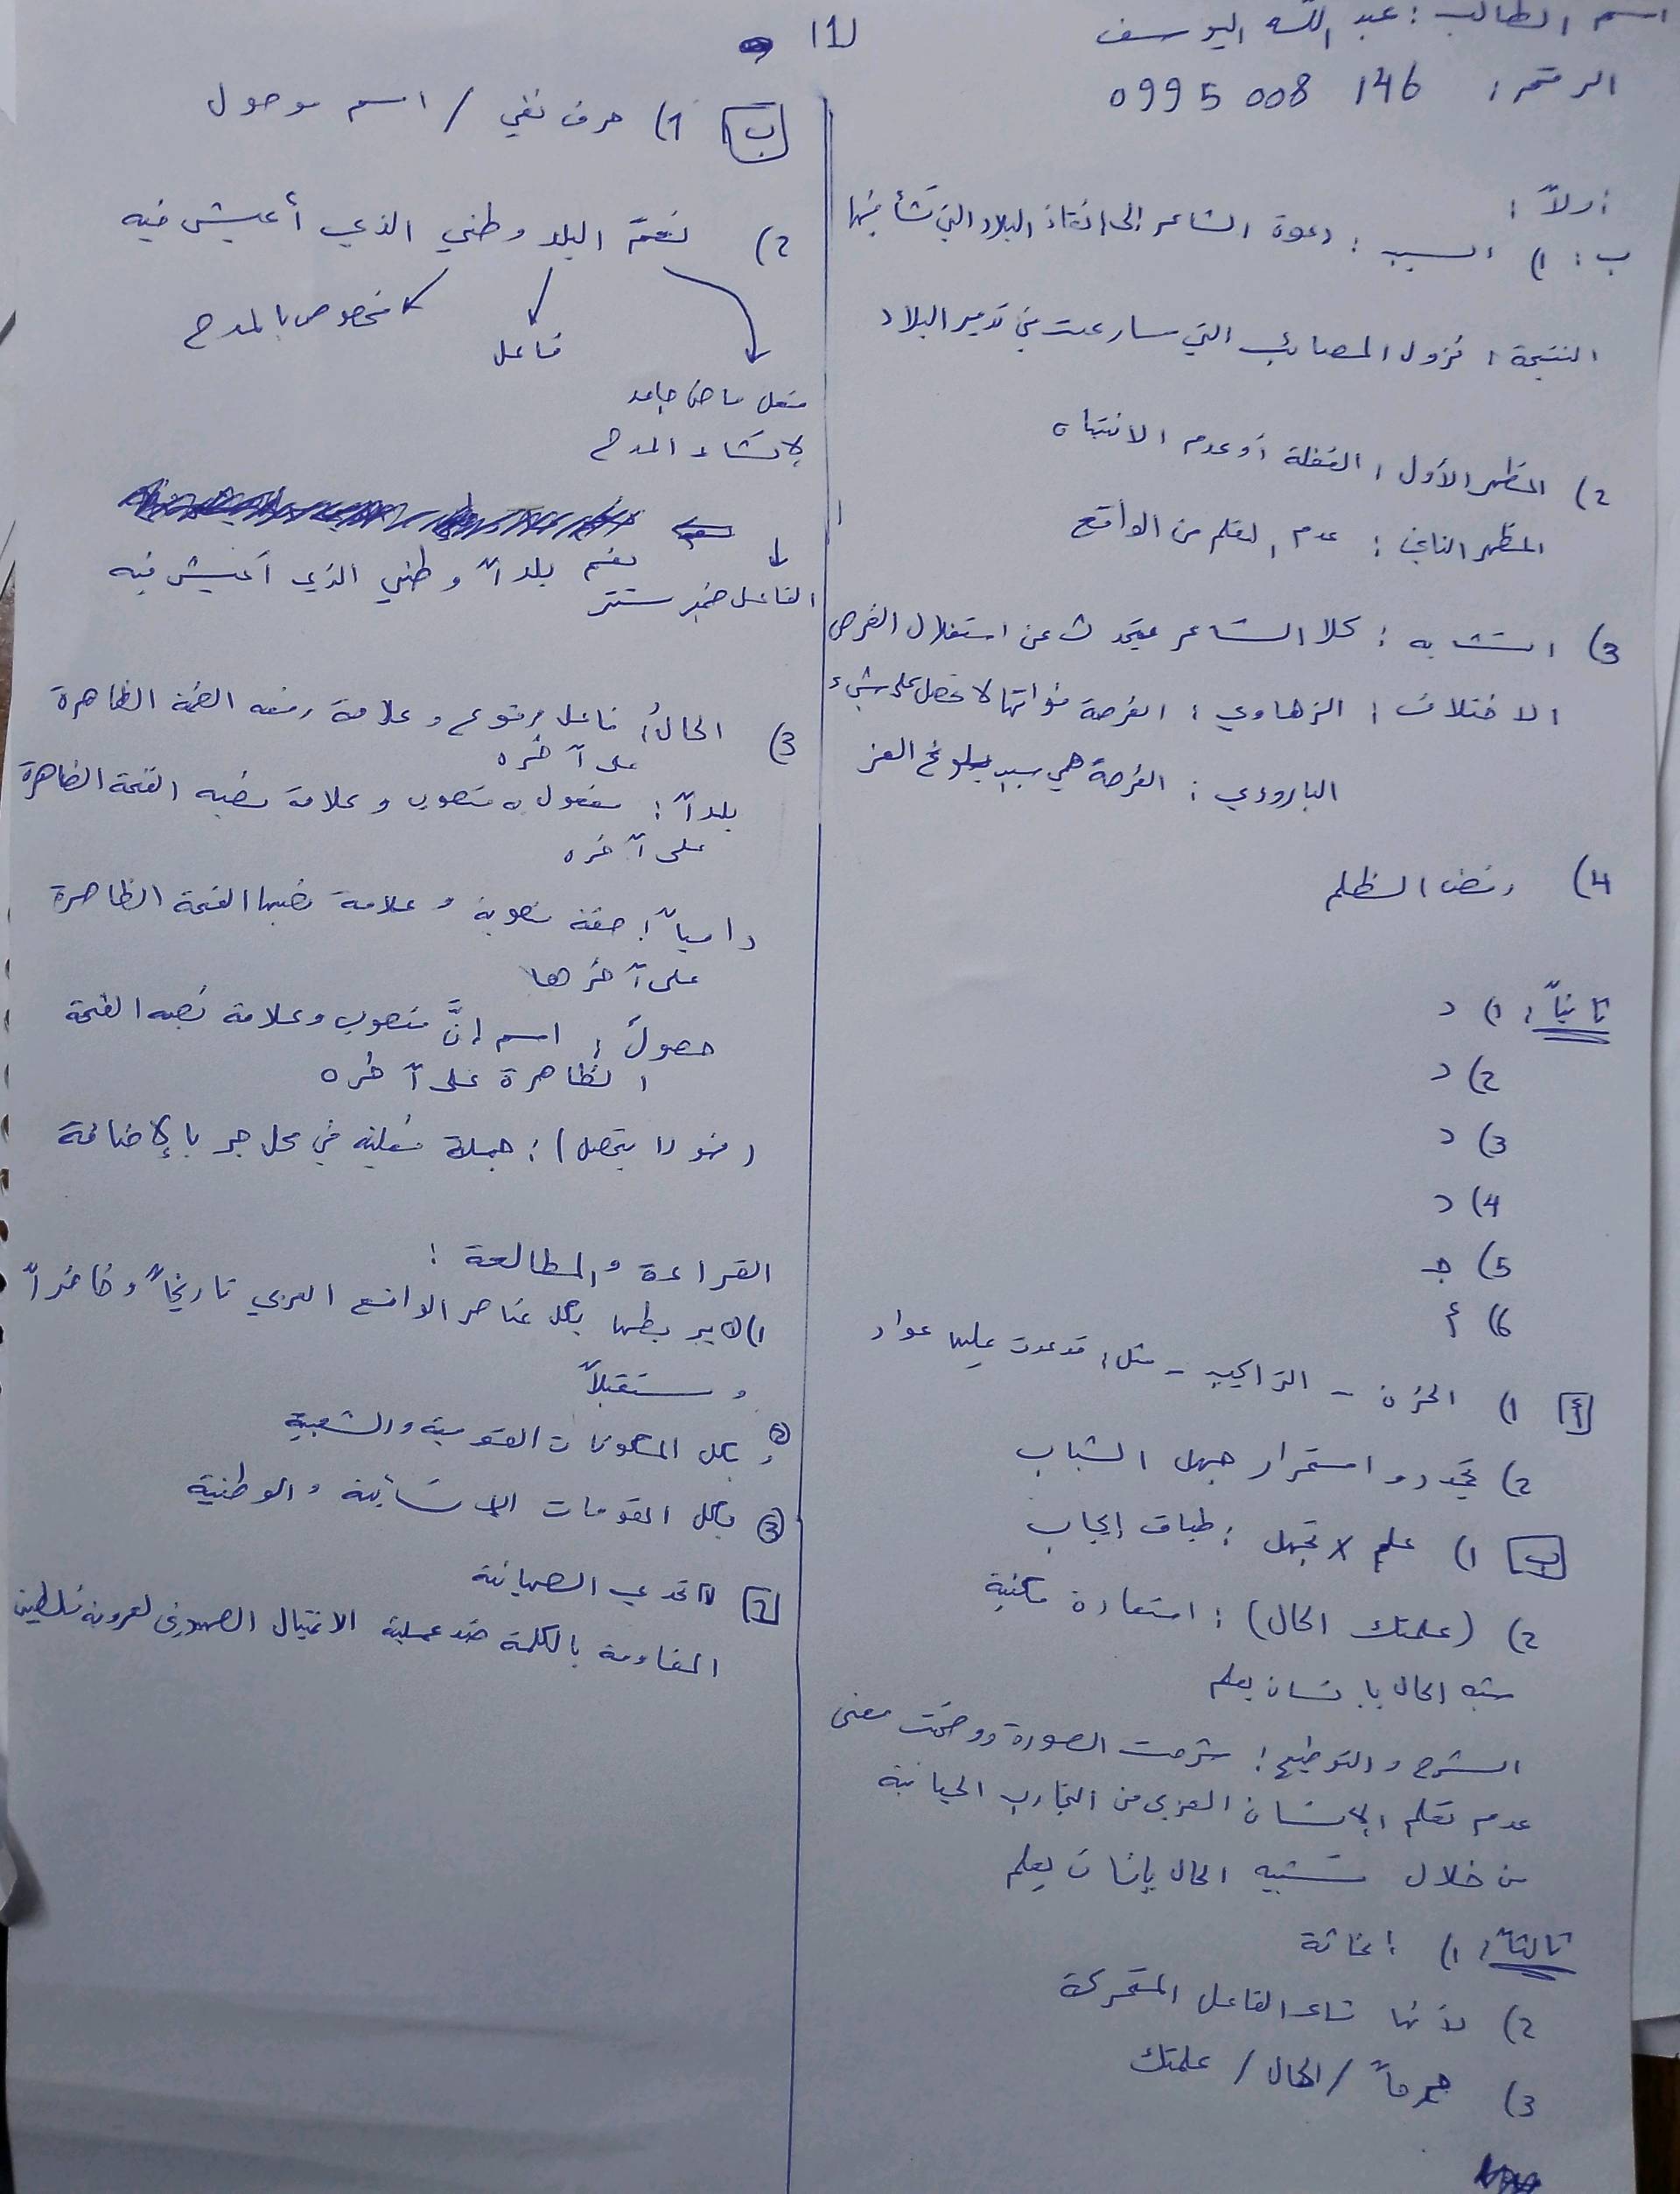 اسم الطالب : عبد الله اليوسف
الرقم : 0995 008 146
(1)
أولاً :
ب : 1) السبب : دعوة الشاعر إلى انقاذ البلاد التي نشأ فيها
النتيجة : نزول المصائب التي سارعت في تدمير البلاد
2) المظهر الأول : الغفلة أو عدم الانتباه
المظهر الثاني : عدم التعلم من الواقع
3) التشابه : كلا الشاعر يتحدث عن استغلال الفرص
الاختلاف : الزهاوي : الفرصة فواتها لا تحصل على شيء
البارودي : الفرصة هي سبب بلوغ العز
4) رفض الظلم
ثانياً : 1) د
2) د
3) د
4) د
5) جـ
6) أ
أ 1) الحزن - التراكيب - مثل : قد عدت عليها عواد
2) تجدد و استمرار جهل الشباب
ب 1) علم × تجهل : طباق إيجاب
2) (علمتك الحال) : استعارة مكنية
شبه الحال بإنسان يعلم
الشرح و التوضيح : شرحت الصورة ووضحت معنى
عدم تعلم الإنسان العربي من التجارب الحياتية
من خلال تشبيه الحال بإنسان يعلم
ثالثاً : 1) إغاثة
2) لأنها تاء الفاعل المتحركة
3) / الحال / علمتك
ب 1) حرف نفي / اسم موصول
2) نعم البلد وطني الذي أعيش فيه
مخصوص بالمدح
فاعل
فعل ماض جامد
لإنشاء المدح
نعم بلداً وطني الذي أعيش فيه
الفاعل ضمير مستتر
3) الحالُ : فاعل مرفوع و علامة رفعه الضمة الظاهرة
على آخره
بلداً : مفعول به منصوب و علامة نصبه الفتحة الظاهرة
على آخره
دامياً : صفة منصوبة و علامة نصبها الفتحة الظاهرة
على آخرها
حصولَ : اسم إنَّ منصوب وعلامة نصبه الفتحة
الظاهرة على آخره
( يتحصل) : جملة فعلية في محل جر بالإضافة
القراءة والمطالعة :
1) ① يربطها بكل عناصر الواقع العربي تاريخاً و حاضراً
و مستقبلاً
② و بكل المكونات القومية والشعبية
③ وبكل المقومات الإنسانية و الوطنية
2 تحدي الصهاينة
المقاومة بالكلمة ضد عملية الاغتيال الصهيوني لعروبة فلسطين